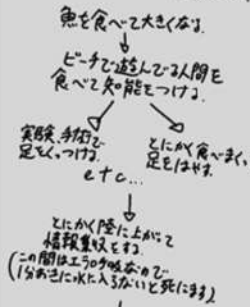 魚を食べて大きくなる。
ビーチで遊んでる人間を
食べて知能をつける。
実験、手術で
足をくっつける。
とにかく食べまくって
足をはやす。
etc...
とにかく陸に上がって
情報集収をする。
(この間はエラ呼吸なので
1分おきに水に入らないと死にます)